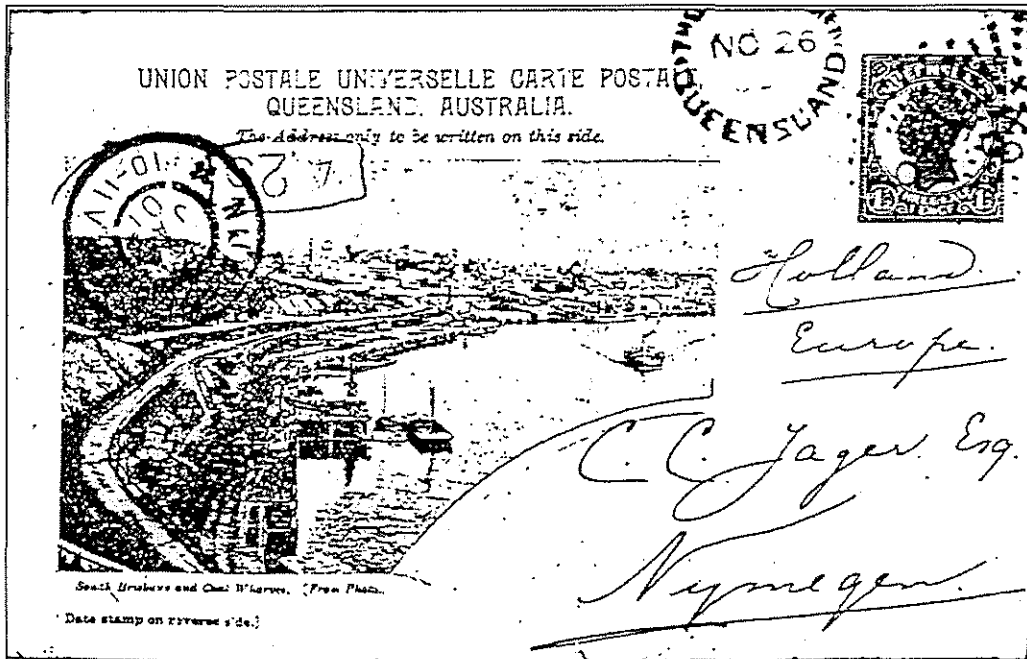 UNION POSTALE UNIVERSELLE CARTE POSTA
QUEENSLAND, AUSTRALIA.
The Address only to be written on this side.
NO 26
QUEENSLAND
Holland.
Europe.
C. C. Jager. Esq.
Nymegen.
South Brisbane and Coal Wharves. (From Photo.
Date stamp on reverse side.]